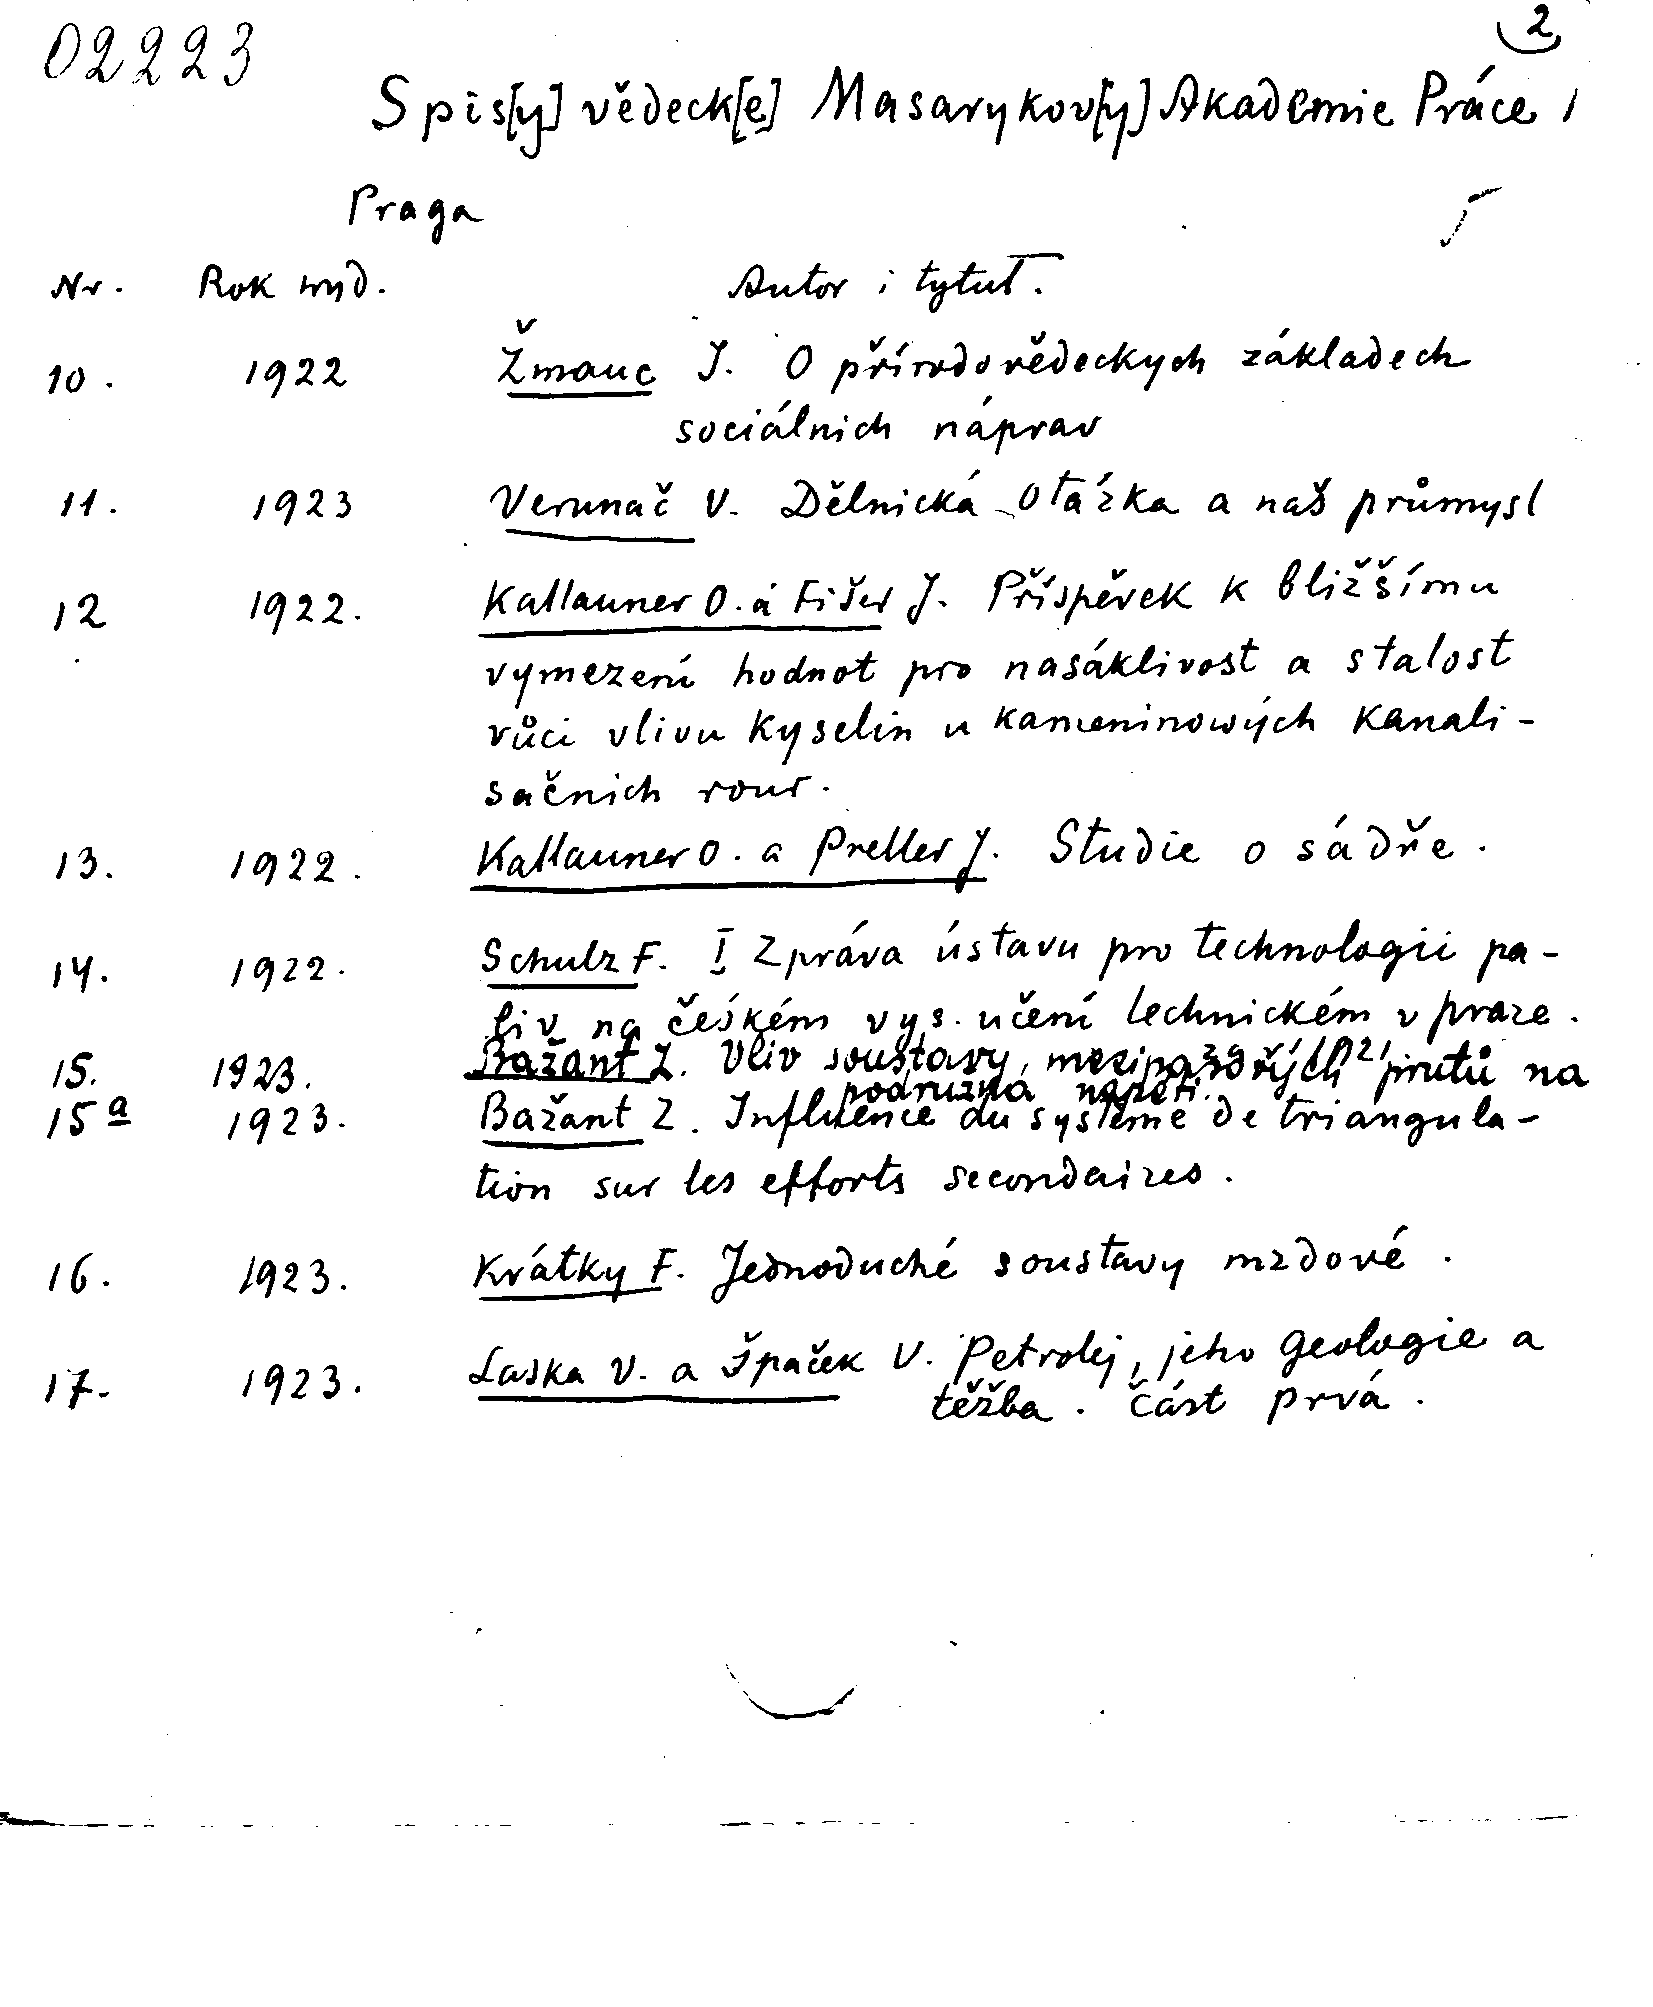 2
02223
Spis[y] vědeck[e] Masarykov[y] Akademie Práce /
Praga
Nr. Rok wyd. Autor i tytuł.
10. 1922 Žmavc J. O přírodovědeckych základech
sociálnich náprav
11. 1923 Verunač V. Dělnická otázka a naš průmysl
12 1922. Kallauner O. a Fišer J. Příspěvek k bližšímu
vymezení hodnot pro nasáklivost a stalost
vůci vlivu kyselin u kameninowých kanali-
sačnich rour.
13. 1922. Kallauner O. a Preller J. Studie o sádře.
14. 1922. Schulz F. I Zpráva ústavu pro technologii pa-
liv na českém vys. učení technickém v praze.
15. 1923. Bažant Z. Vliv soustavy prutů na
podružná napětí.
15a 1923. Bažant Z. Influence du système de triangula-
tion sur les efforts secondaires.
16. 1923. Krátky F. Jednoduché soustavy mzdové.
17. 1923. Laska V. a Špaček V. Petrolej, jeho geologie a
těžba. část prvá.